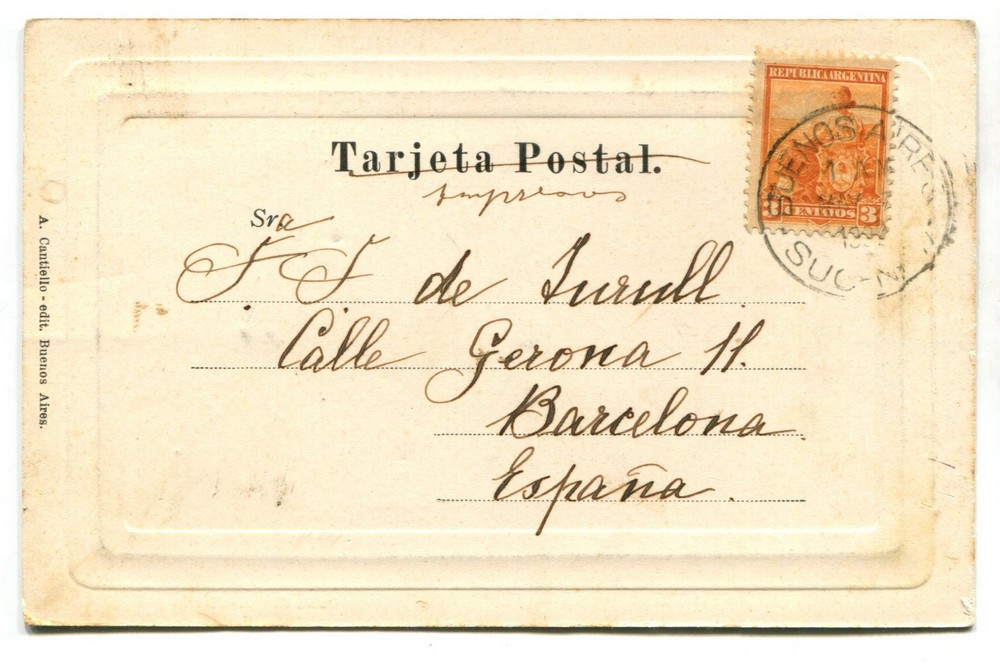 REPUBLICA ARGENTINA
CENTAVOS 3
BUENOS AIRES
SUC-N.
Tarjeta Postal.
Impresos
Sra
F. F. de Turull
Calle Gerona 11.
Barcelona
España.
A. Cantiello - edit. Buenos Aires.